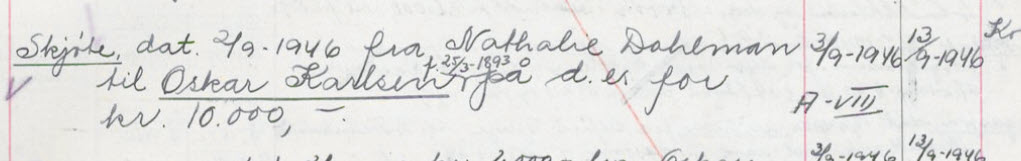 Skjøte, dat. 2/9-1946 fra Nathalie Dahlman 3/9-1946 13/9-1946 Kr
til Oskar Karlsen f. 25/3-1893 på d. es. for
kr. 10.000, — . A-VIII
3/9-1946 13/9-1946